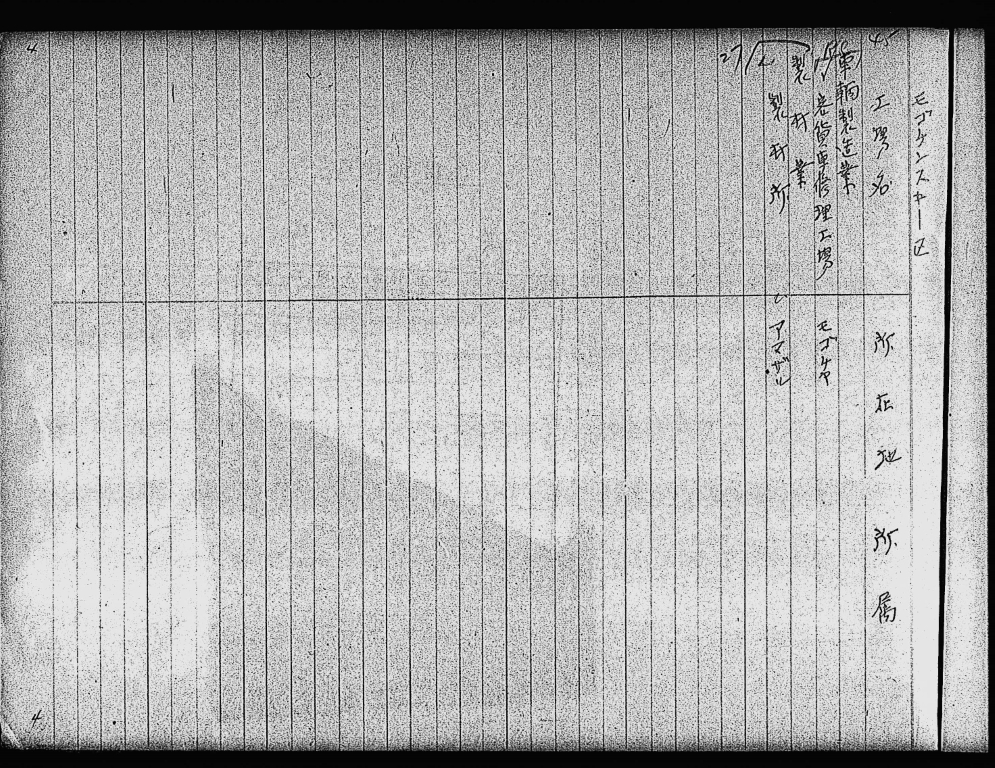 モゴケンスキー区
工場名　所在地　所属
車輌製造業
客貨車修理工場　モゴケヤ
製材業
製材所　アマザル
4
4